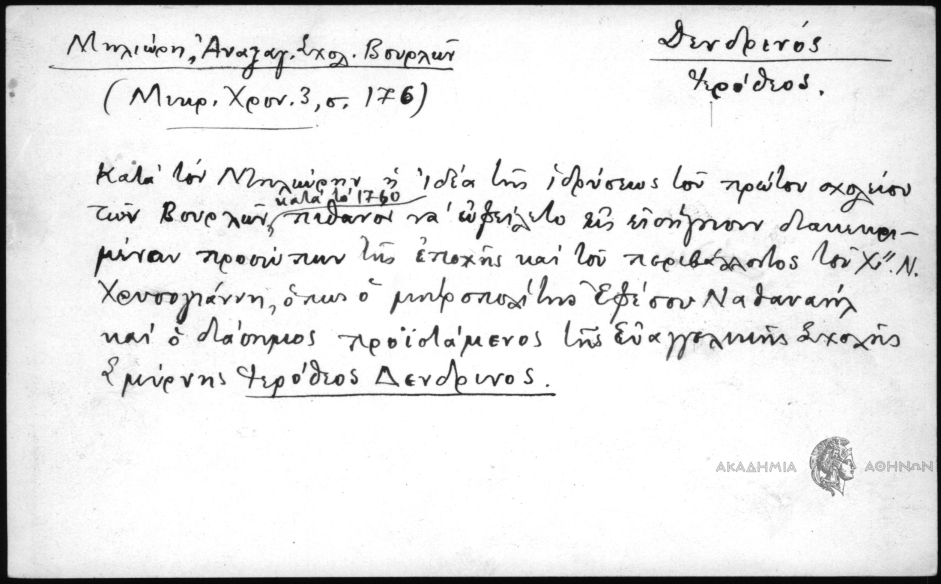 Μηλιώρη, Ἀναγαγ. Σχολ. Βουρλῶν
Δενδρινός
(Μικρ. Χρον. 3, σ. 176)
Ἱερόθεος.
Κατά τόν Μηλιώρην ἡ ἰδέα τῆς ἱδρύσεως τοῦ πρώτου σχολείου
κατά τό 1760
τῶν Βουρλῶν, πιθανόν νά ὠφείλετο εἰς εἰσήγησιν διακεκρι-
μένων προσώπων τῆς ἐποχῆς καί τοῦ περιβάλλοντος τοῦ Χ" Ν.
Χρυσογιάννη, ὅπως ὁ μητροπολίτης Ἐφέσου Ναθαναήλ
καί ὁ διάσημος προϊστάμενος τῆς Εὐαγγελικῆς Σχολῆς
Σμύρνης Ἱερόθεος Δενδρινος.
ΑΚΑΔΗΜΙΑ ΑΘΗΝΩΝ